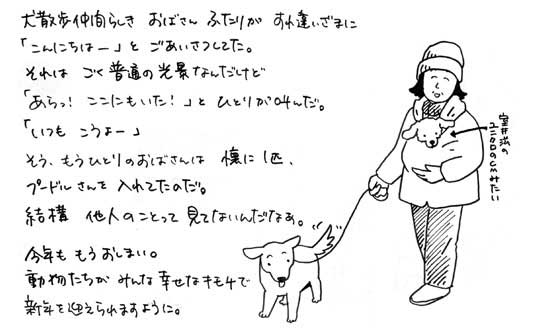 犬散歩仲間らしき おばさん ふたりが すれ違いざまに
「こんにちはー」と ごあいさつしてた。
それは ごく普通の光景なんだけど
「あらっ！ ここにもいた！」と ひとりが叫んだ。
「いつも こうよー」
そう、もうひとりのおばさんは 懐に1匹、
プードルさんを 入れてたのだ。
結構 他人のことって 見てないんだなあ。
今年も もうおしまい。
動物たちが みんな 幸せなキモチで
新年を迎えられますように。
室井滋の
ユニクロのCMみたい